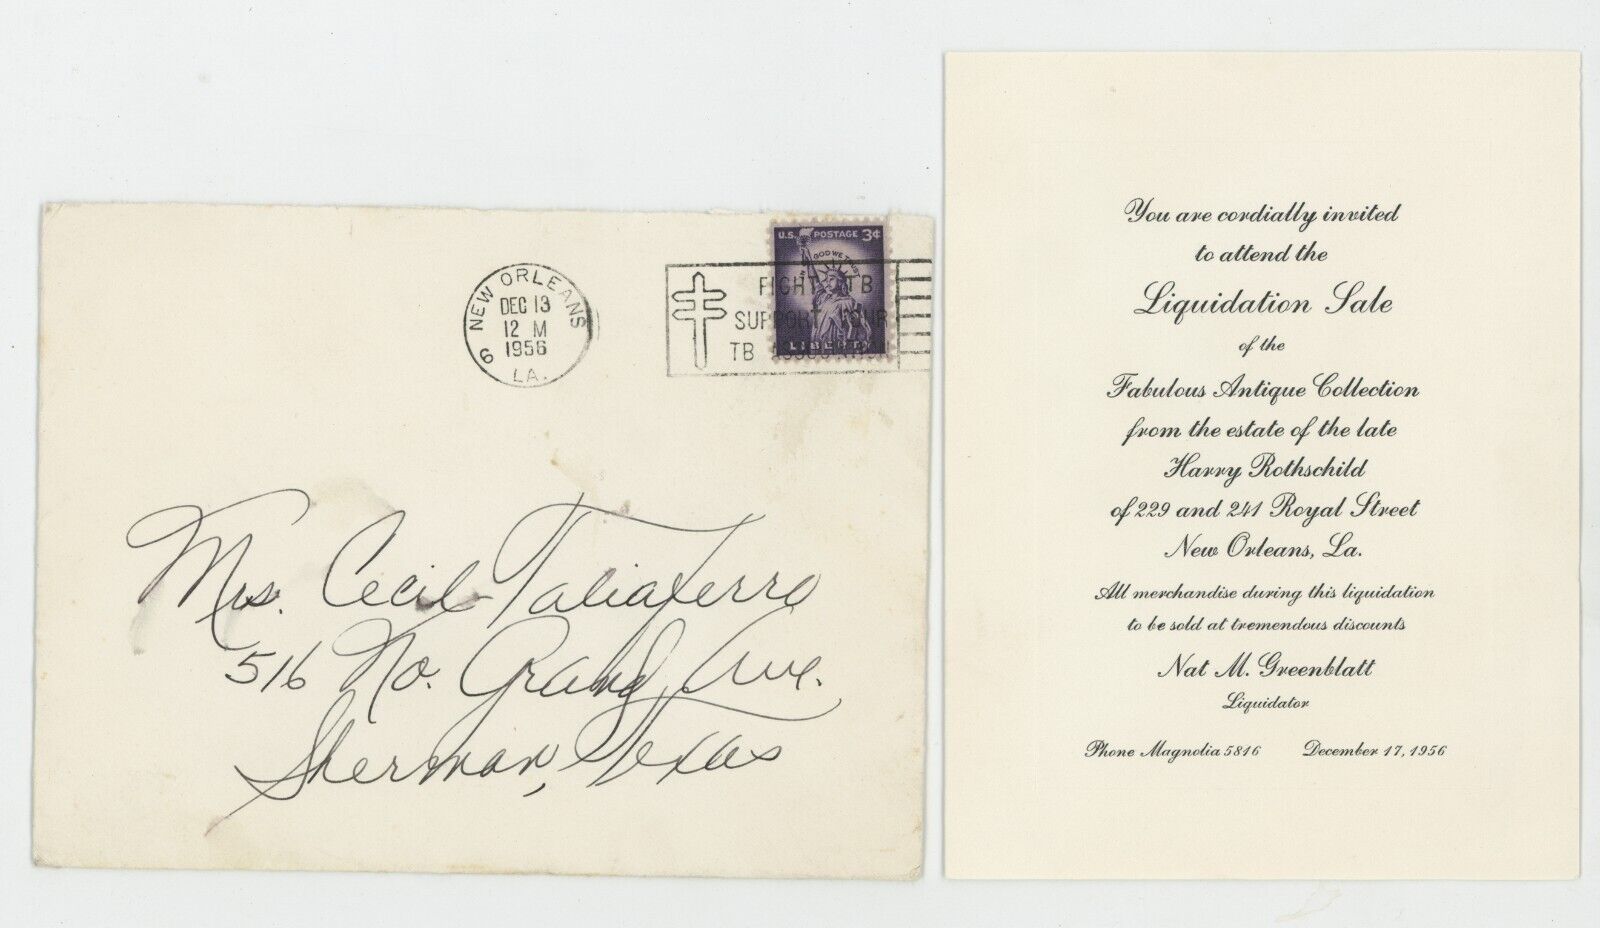 NEW ORLEANS
DEC 13
12 M
1956
6
LA.
U.S. POSTAGE 3¢
IN GOD WE TRUST
LIBERTY
FIGHT TB
SUPPORT YOUR
TB ASSOCIATION
Mrs. Cecil Taliaferro
516 No. Grand Ave.
Sherman, Texas
You are cordially invited
to attend the
Liquidation Sale
of the
Fabulous Antique Collection
from the estate of the late
Harry Rothschild
of 229 and 241 Royal Street
New Orleans, La.
All merchandise during this liquidation
to be sold at tremendous discounts
Nat M. Greenblatt
Liquidator
Phone Magnolia 5816 December 17, 1956